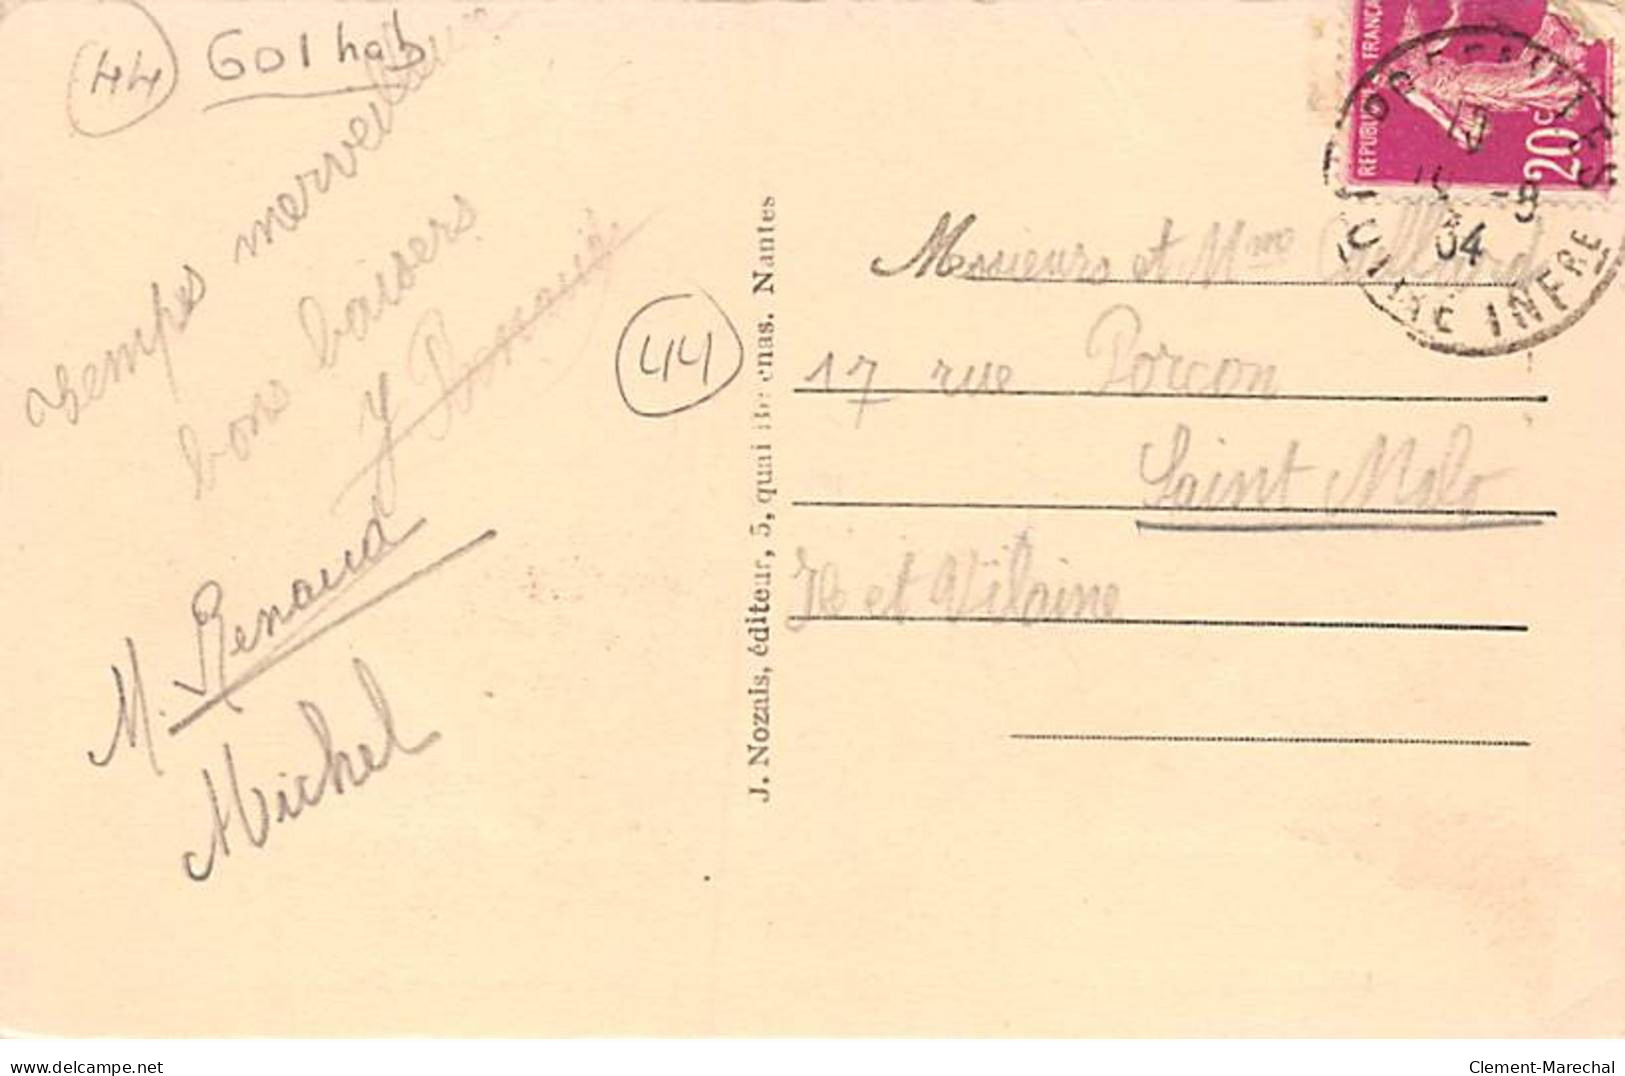 44
601 hab
Temps merveilleux
bons baisers
Y Renaud
M. Renaud
Michel
44
J. Nozais, éditeur, 5, quai Nantes
REPUBLIQUE FRANÇAISE
20c
LOIRE INFRE
04
Messieurs et Mme
17 rue Porcon
Saint Malo
Ile et Vilaine
delcampe.net
Clement-Marechal